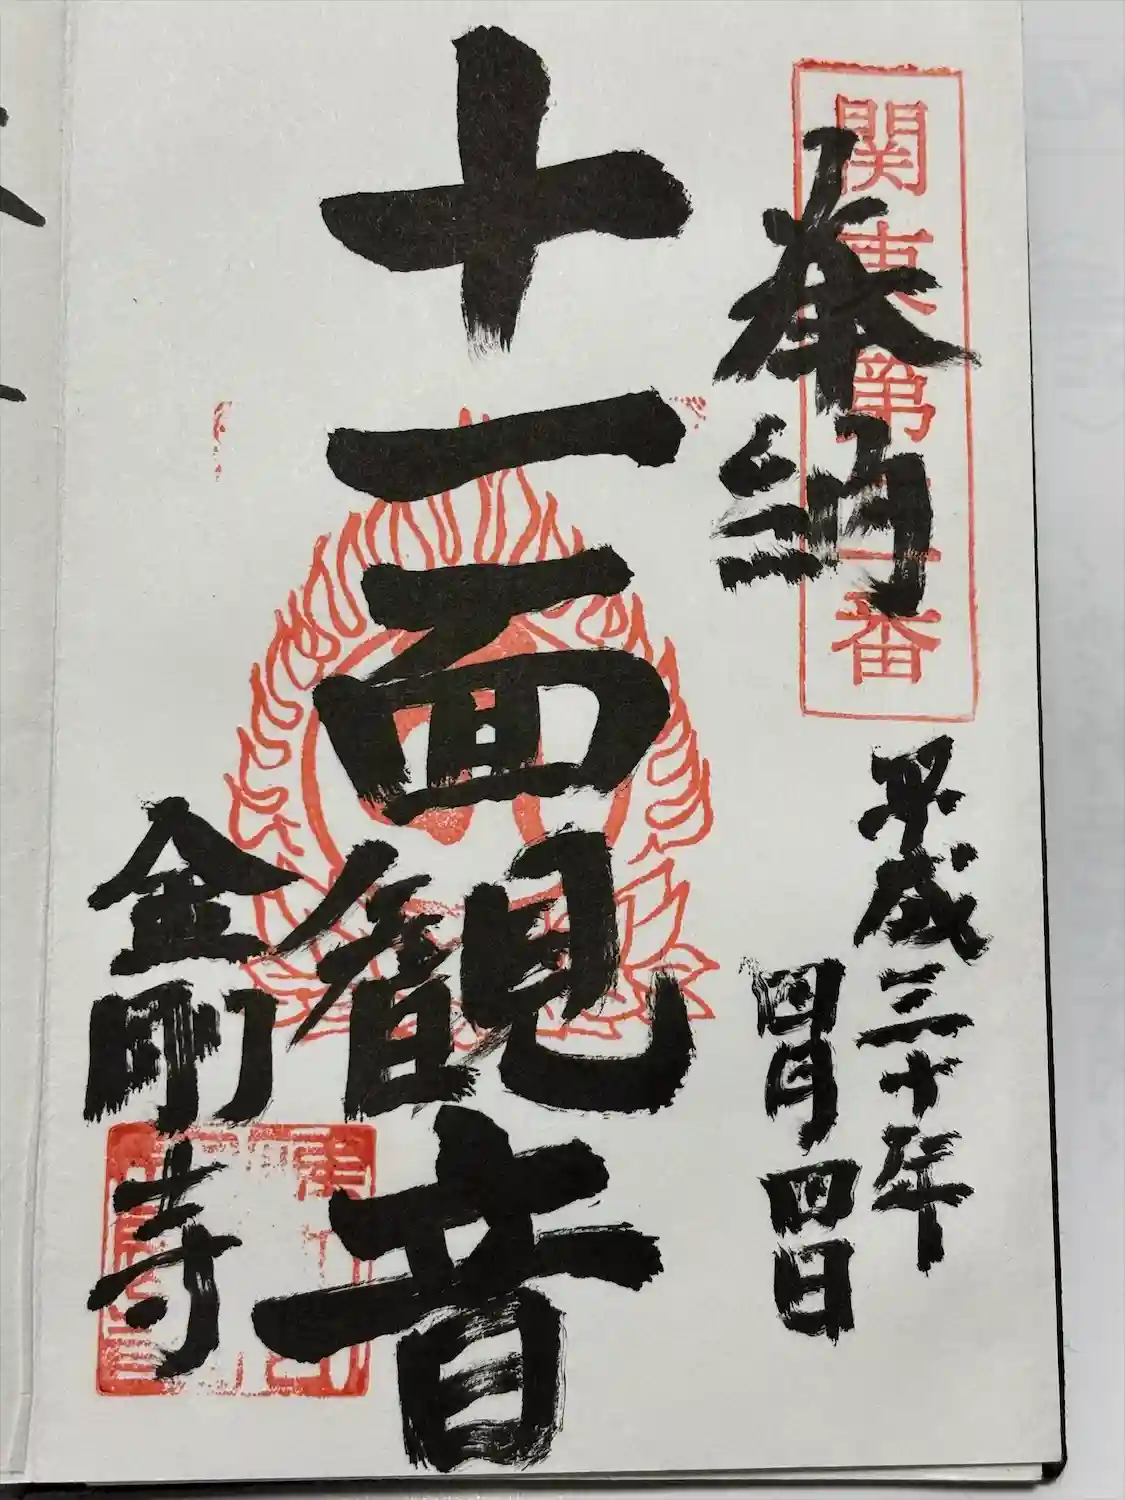 奉納
関東第番
平成三十年
四月四日
十一面観音
金剛寺